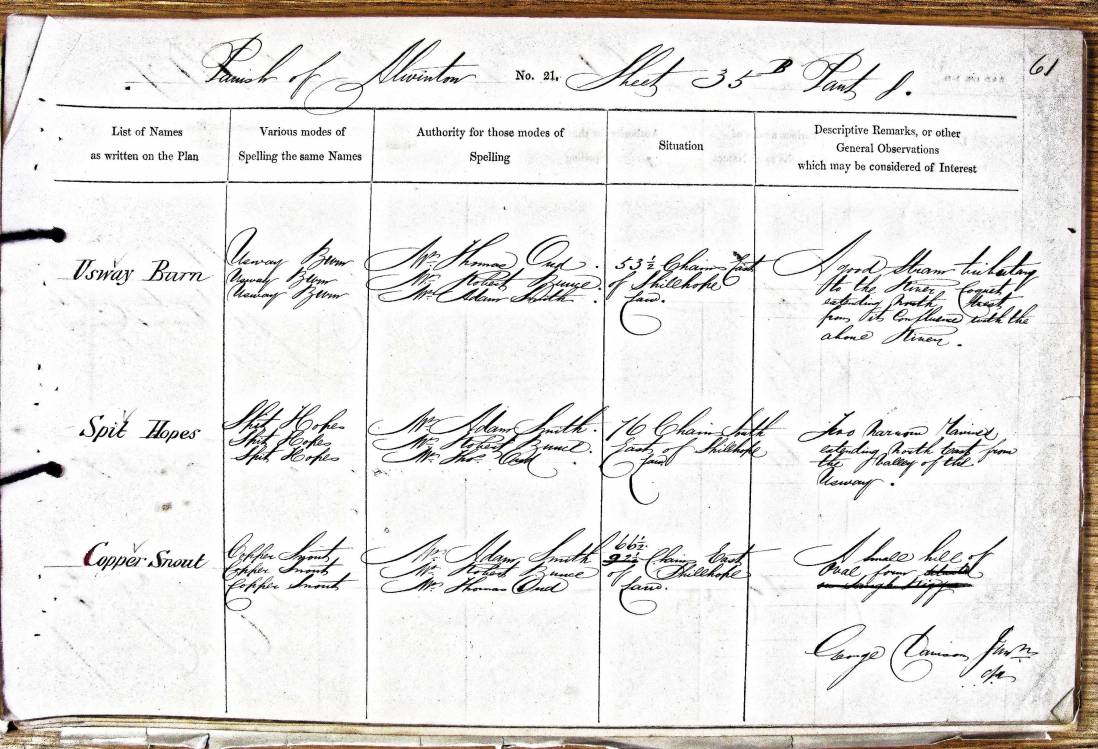 61
Parish of Alwinton No. 21. Sheet 35 B
List of Names
as written on the Plan
Various modes of
Spelling the same Names
Authority for those modes of
Spelling
Situation
Descriptive Remarks, or other
General Observations
which may be considered of Interest
Usway Burn
Usway Burn
Usway Burn
Usway Burn
Mr. Thomas
Mr. Robert
Mr. Adam Smith
53½ Chains East
of Shillhope
Law.
A good Stream tributary
to the River Coquet,
extending North West
from its Confluence with the
above River.
Spit Hopes
Spit Hopes
Spit Hopes
Spit Hopes
Mr. Adam Smith.
Mr. Robert
Mr. Thos.
76 Chains South
East of Shillhope
Law
Two narrow Ravines,
extending North East from
the Valley of the
Usway.
Copper Snout
Copper Snout
Copper Snout
Copper Snout
Mr. Adam Smith
Mr. Robert
Mr. Thomas
66½
92½ Chains East
of Shillhope
Law.
A small hill of
Oval form
George